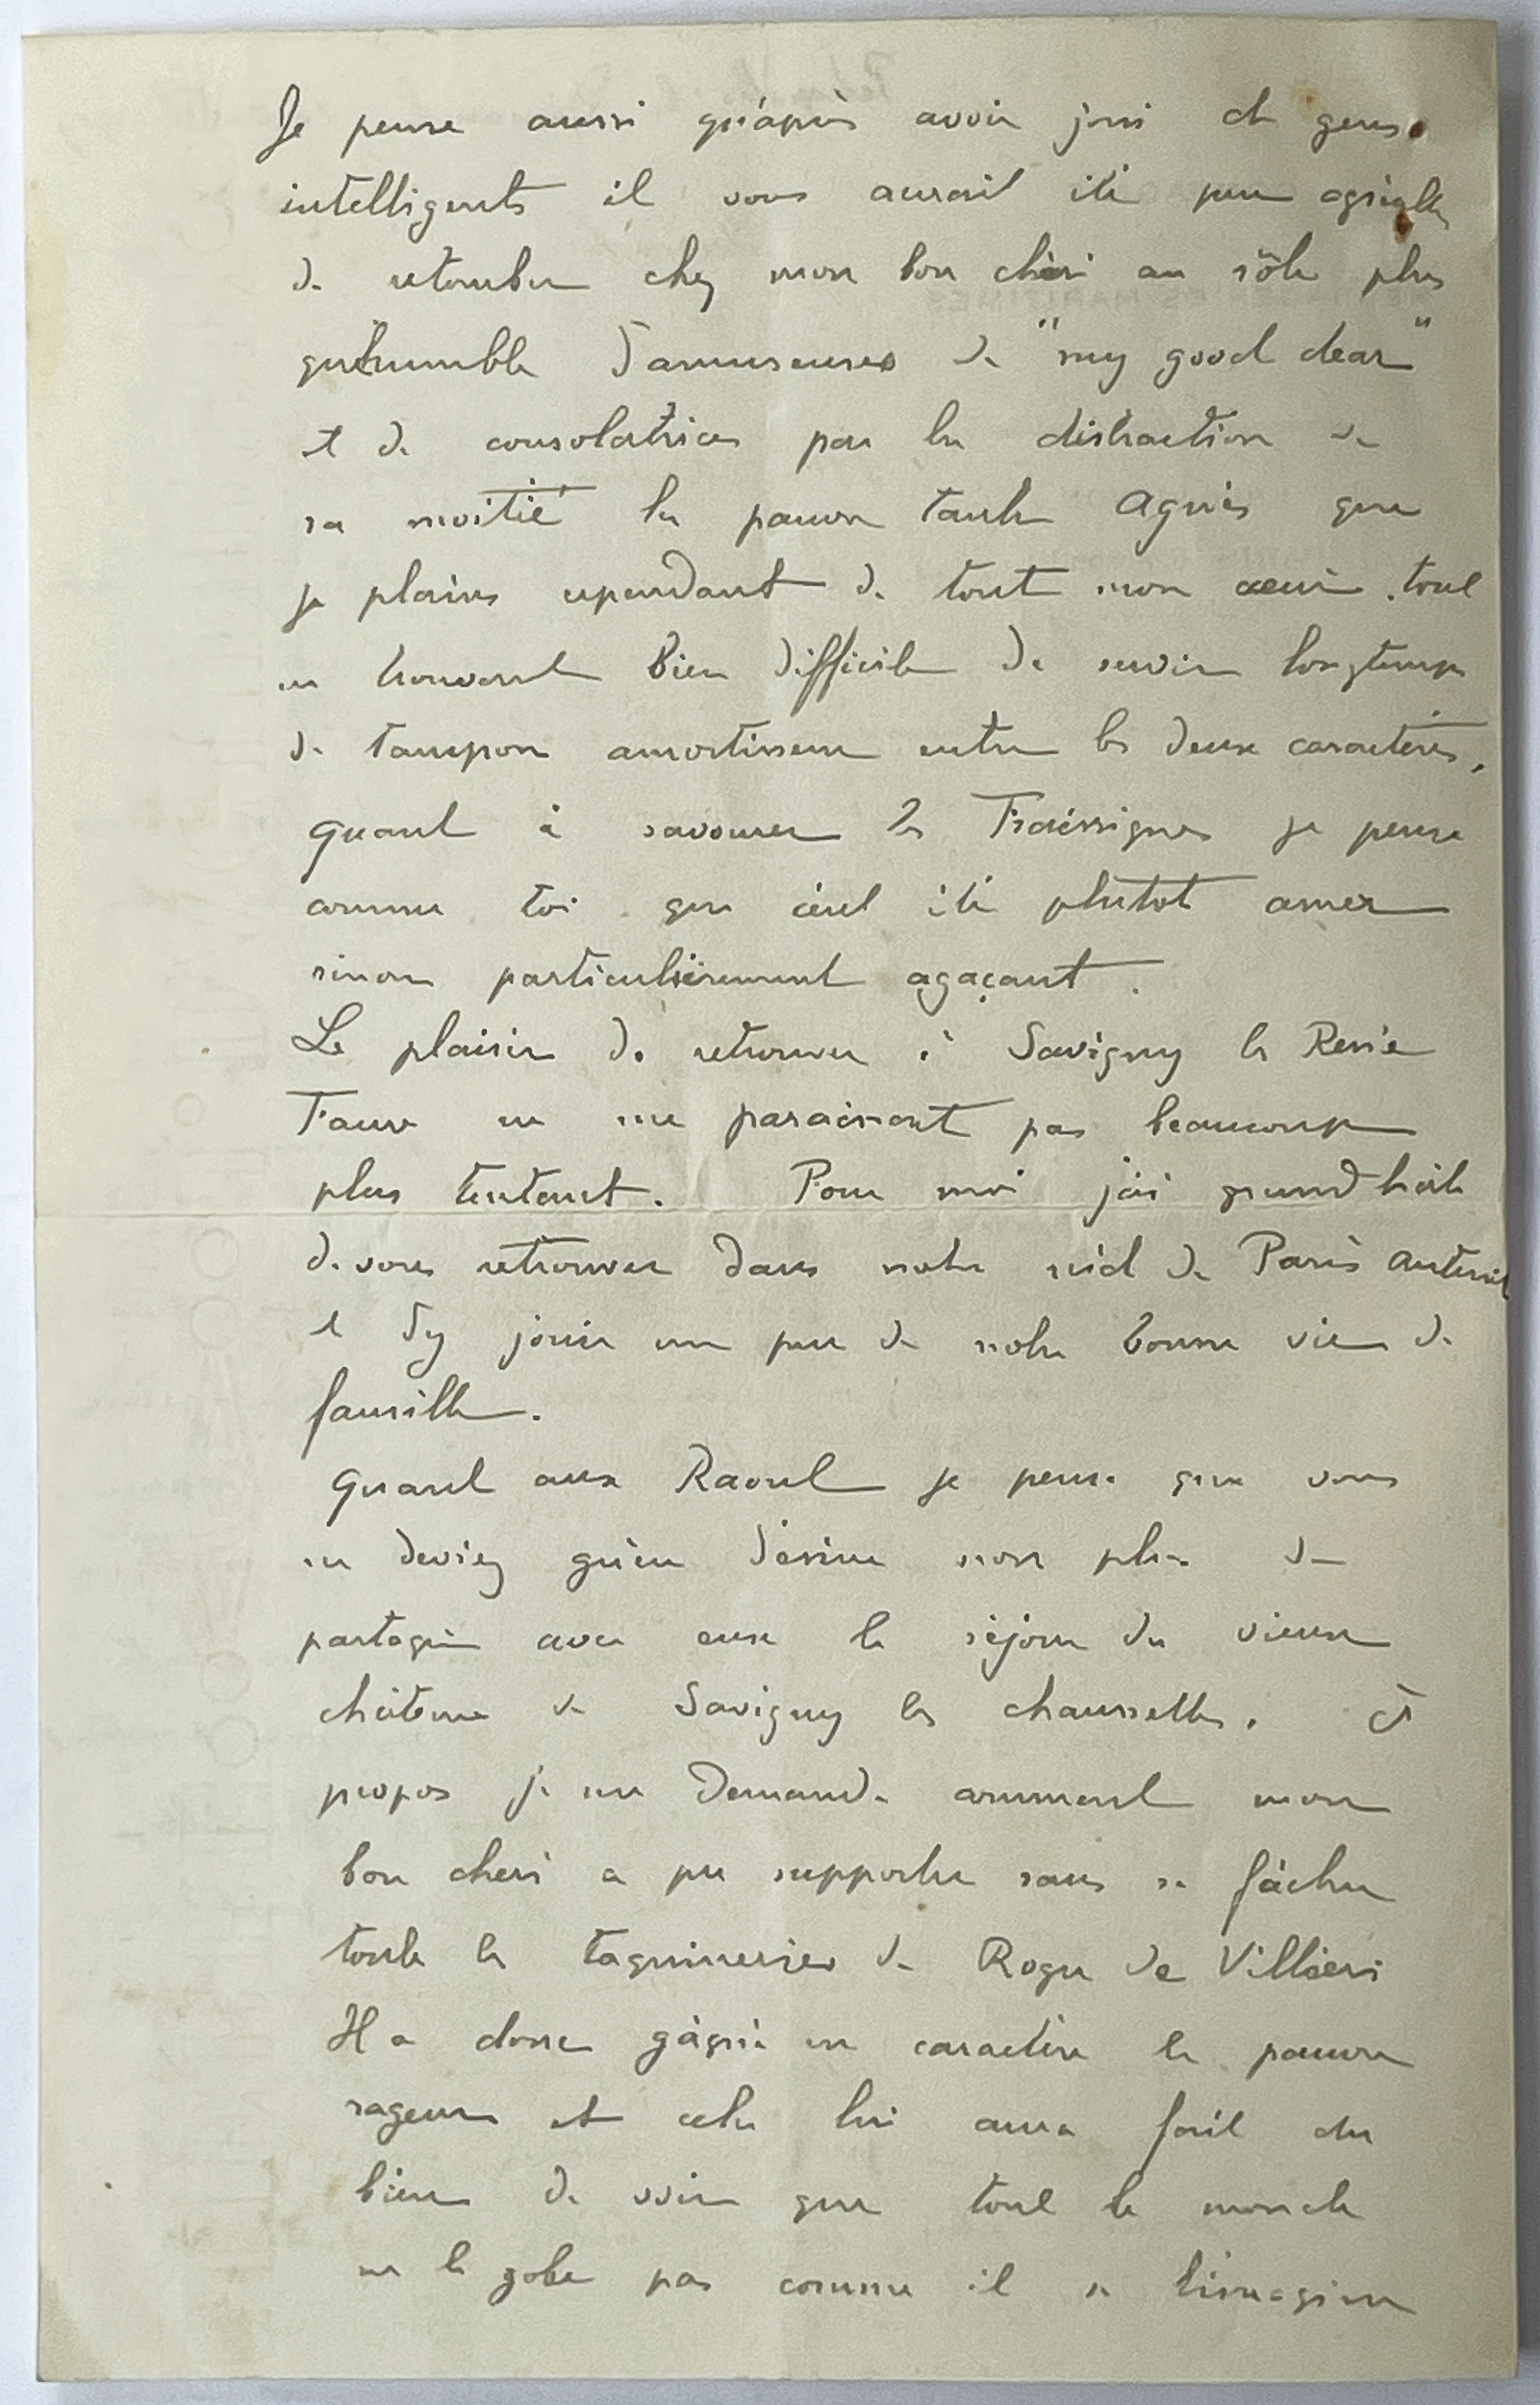 Je pense aussi qu'après avoir joui de gens
intelligents il vous aurait été peu agréable
de retomber chez mon bon chéri au rôle plus
qu'humble d'amuseuses de "my good dear"
et de consolatrices par la distraction de
sa moitié la pauvre tante Agnès que
je plains cependant de tout mon cœur. tout
en trouvant bien difficile de servir longtemps
de tampon amortisseur entre les deux caractères.
Quant à savourer les je pense
comme toi que c'eut été plutot amer
sinon particulièrement agaçant.
Le plaisir de retrouver à Savigny les René
Faure ne me paraissait pas beaucoup
plus tentant. Pour moi j'ai grand hâte
de vous retrouver dans notre nid de Paris Auteuil
et d'y jouir un peu de notre bonne vie de
famille.
Quant aux Raoul je pense que vous
ne deviez guère désirer non plus de
partager avec eux le séjour du vieux
château de Savigny les chaussettes. A
propos je me demande comment mon
bon cheri a pu supporter sans se fâcher
toute les taquineries de Roger de Villiers
Il a donc gagné en caractère le pauvre
rageur et cela lui aura fait du
bien de voir que tout le monde
ne le gobe pas comme il se l'imagine